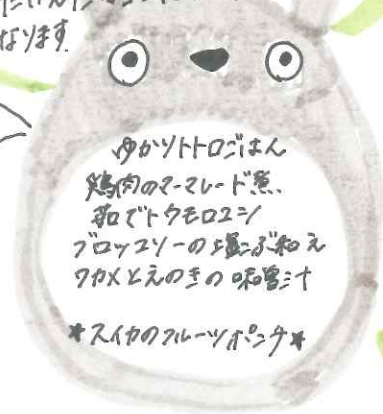 なります
ゆかりトトロごはん
鶏肉のマーマレード煮
茹でトウモロコシ
ブロッコリーの塩こぶ和え
ワカメとえのきの味噌汁
*スイカのフルーツポンチ*